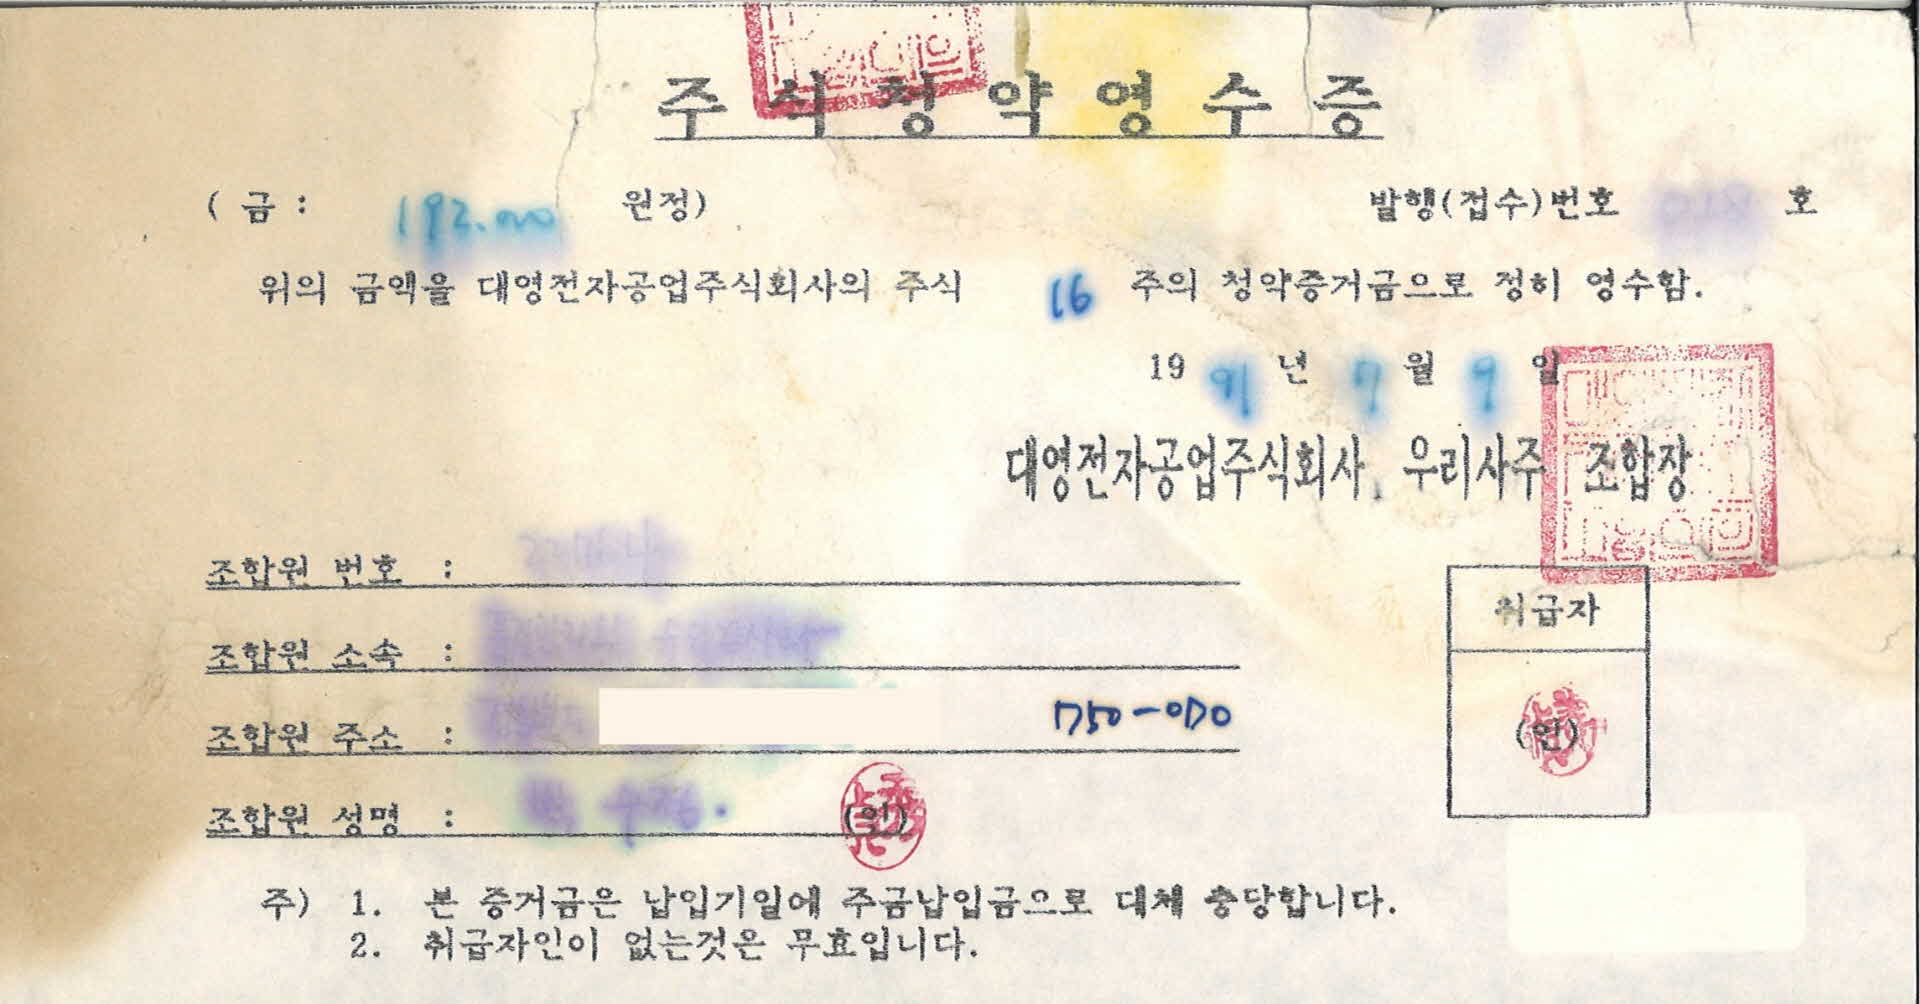 주식청약영수증
( 금 : 192.000 원정) 발행(접수)번호 호
위의 금액을 대영전자공업주식회사의 주식 16 주의 청약증거금으로 정히 영수함.
19 91 년 7 월 9 일
대영전자공업주식회사. 우리사주 조합장
조합원 번호 :
조합원 소속 :
취급자
조합원 주소 : 750-070
(인)
조합원 성명 : 박 수정. (인)
주) 1. 본 증거금은 납입기일에 주금납입금으로 대체 충당합니다.
2. 취급자인이 없는것은 무효입니다.